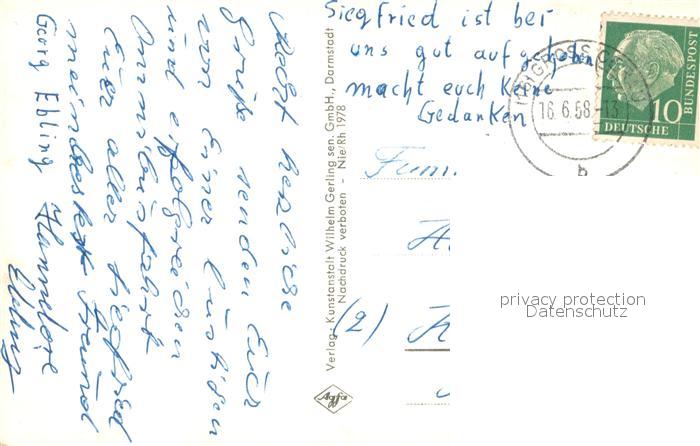 Recht herzliche
Grüße senden Euch
von einer lustigen
und erfolgreichen
Omnibusfahrt
Euer aller Siegfried
mein bester Freund
Georg Ebling Hannelore
Ebling
Siegfried ist bei
uns gut aufgehoben
macht euch keine
Gedanken
Verlag: Kunstanstalt Wilhelm Gerling sen. GmbH., Darmstadt
Nachdruck verboten - Nie/Rh 1978
Agfa
16.6.58.-13
b
10
DEUTSCHE
BUNDESPOST
Fam.
(2)
privacy protection
Datenschutz